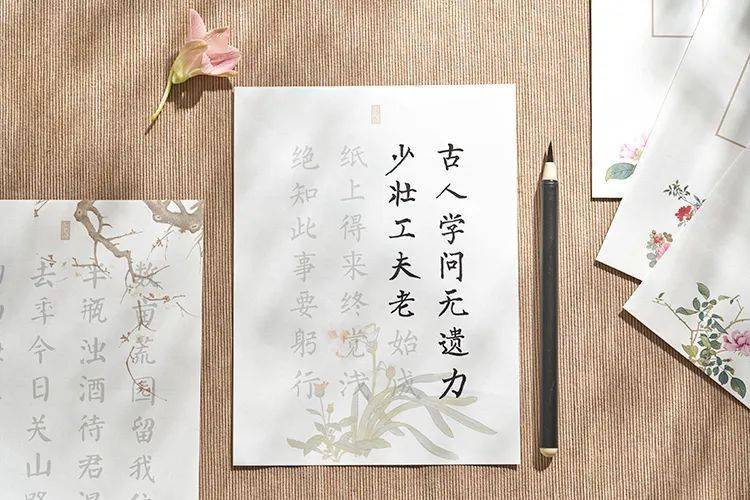 古人学问无遗力
少壮工夫老始成
纸上得来终觉浅
绝知此事要躬行
数亩荒园留我住
半瓶浊酒待君温
去年今日关山路